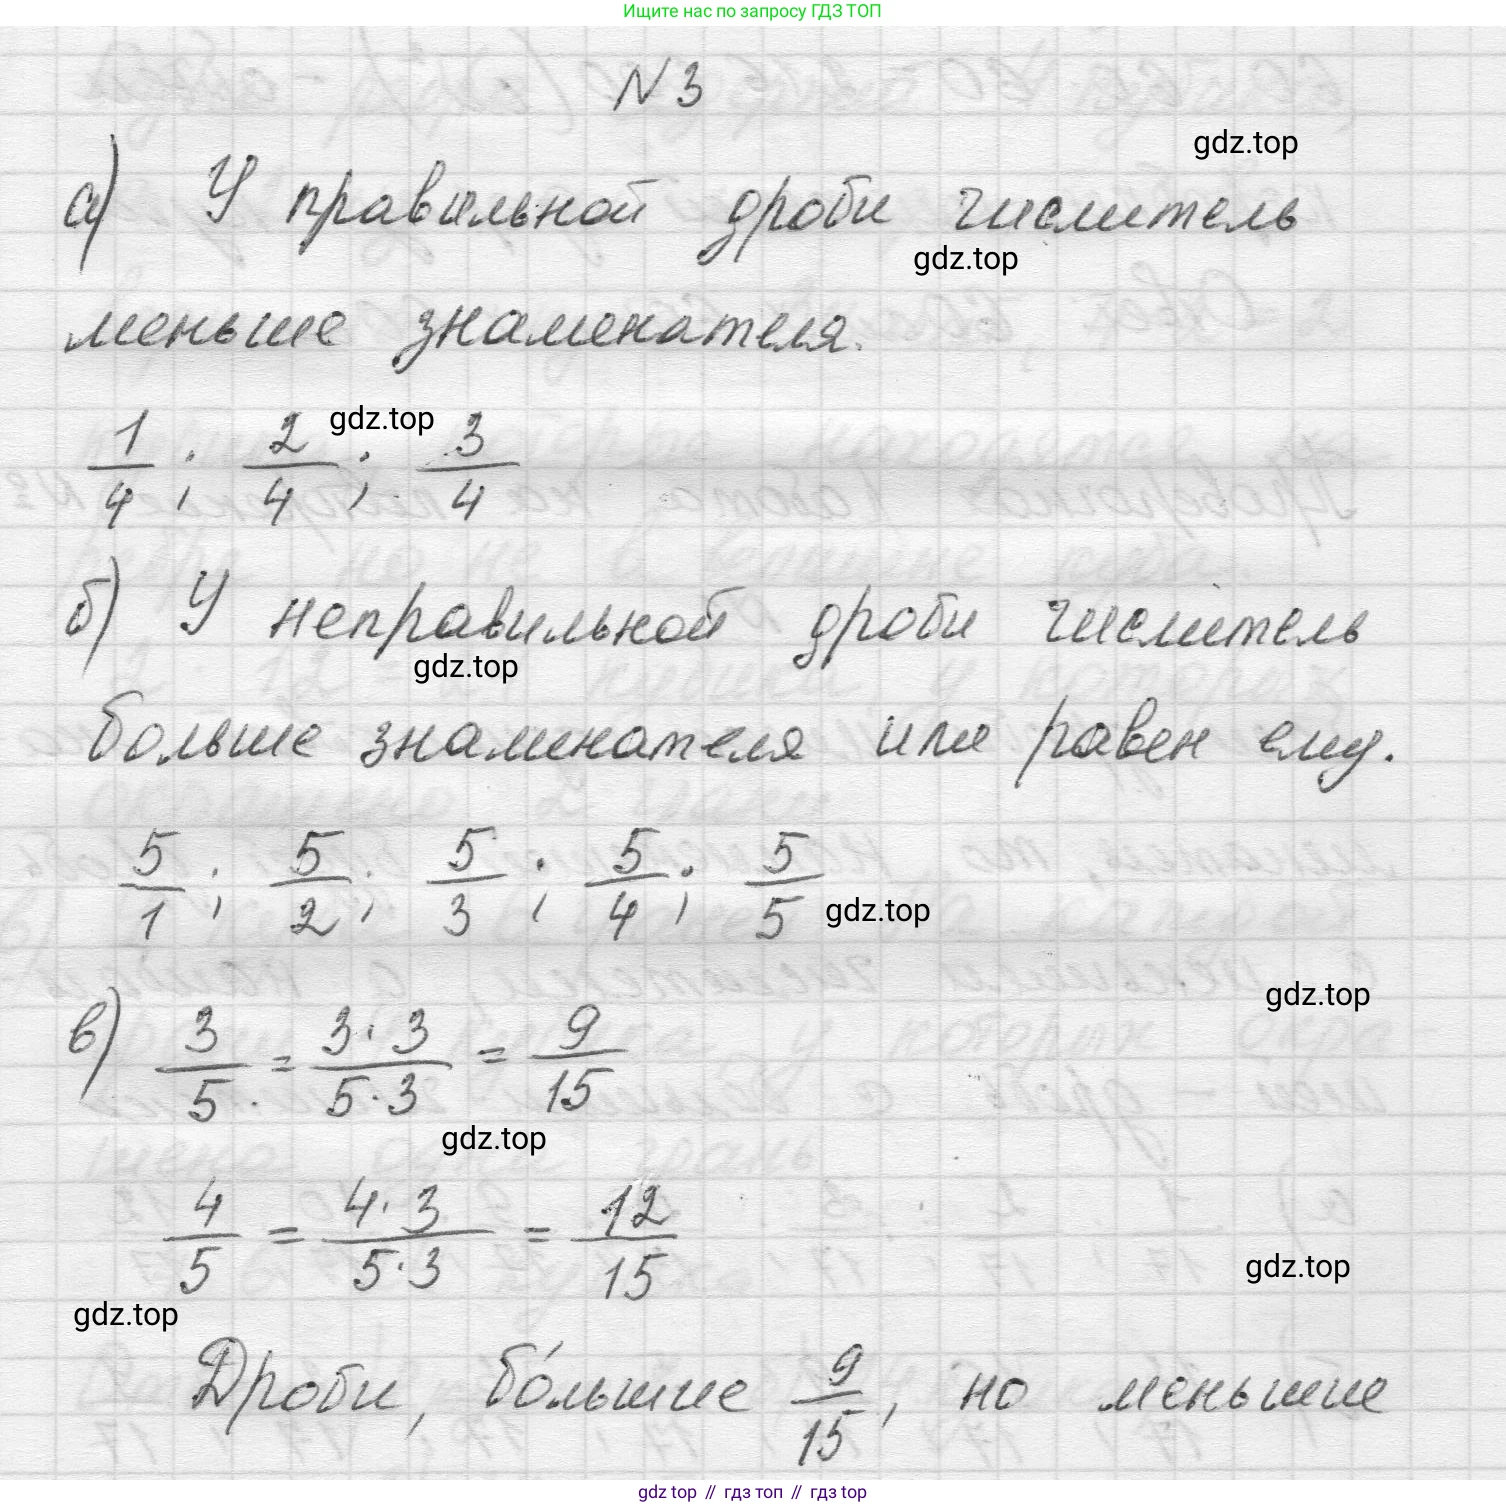 Ищите нас по запросу ГДЗ ТОП
N 3
gdz.top
а) У правильной дроби числитель
gdz.top
меньше знаменателя.
gdz.top
1/4 ; 2/4 ; 3/4
б) У неправильной дроби числитель
gdz.top
больше знаменателя или равен ему.
5/1 ; 5/2 ; 5/3 ; 5/4 ; 5/5
gdz.top
gdz.top
в) 3/5 = 3·3/5·3 = 9/15
gdz.top
4/5 = 4·3/5·3 = 12/15
gdz.top
gdz.top
Дроби, бо́льшие 9/15, но меньшие
gdz top // гдз топ // gdz top